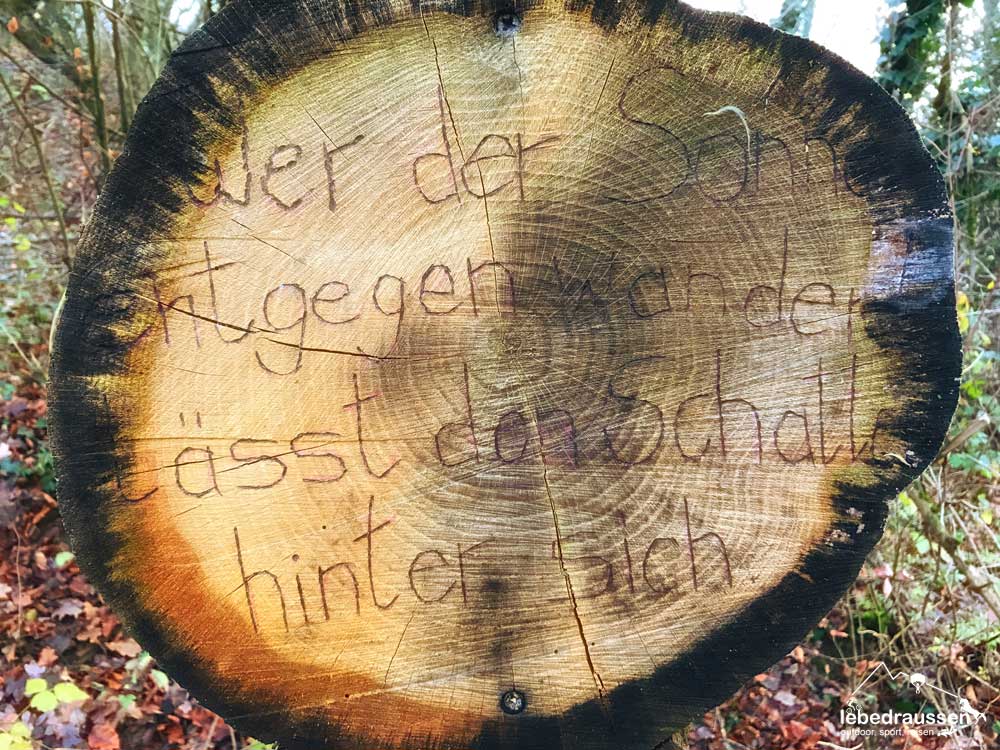 Wer der Sonn
entgegen wander
Lässt den Schatt
hinter sich
lebedraussen
outdoor, sport, reisen